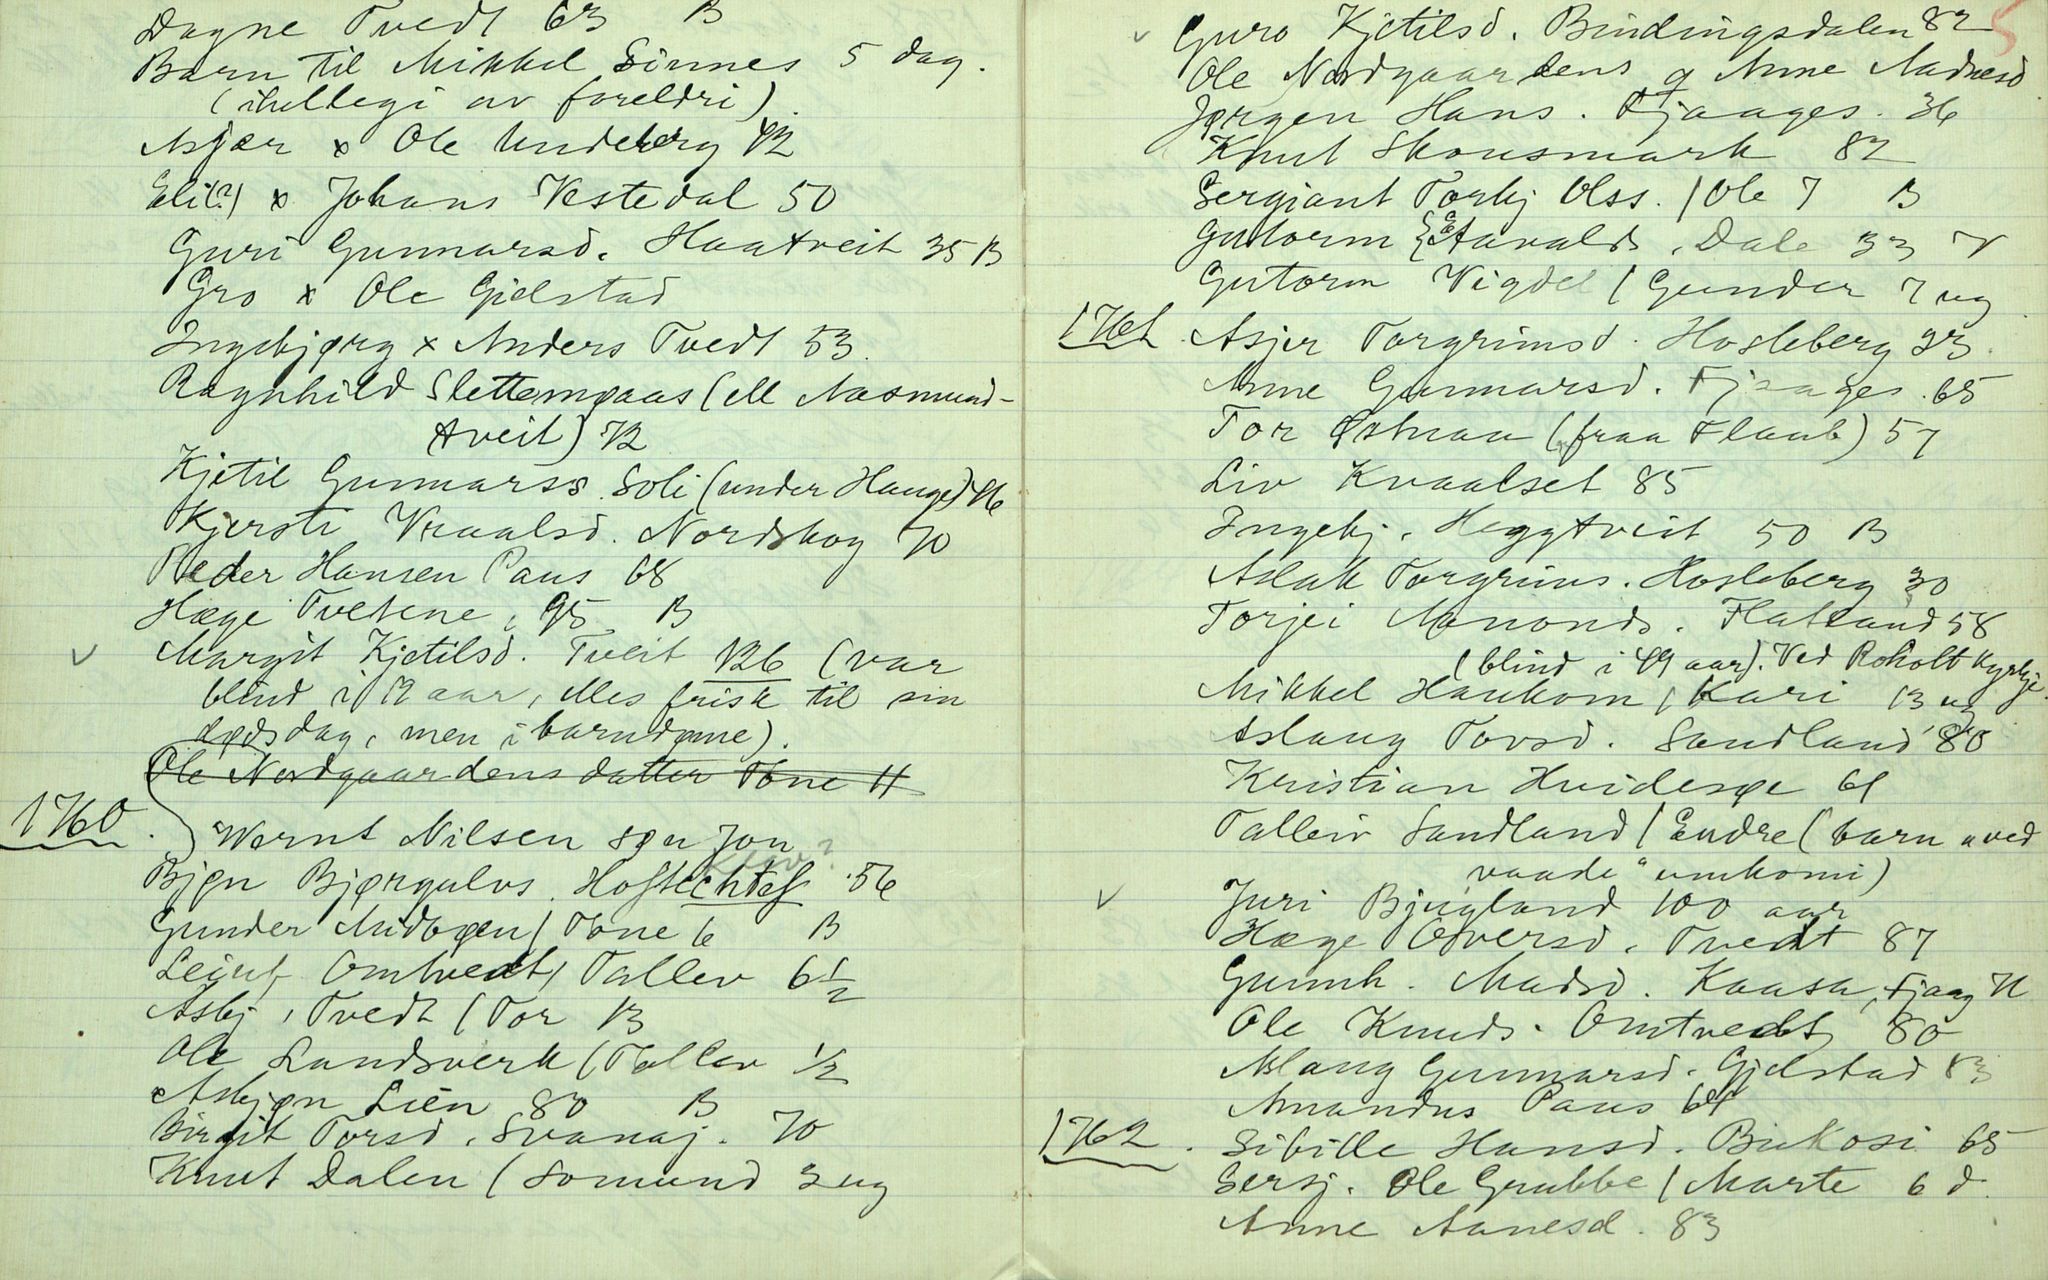 Dagne Tvedt 63 B
Barn til Mikkel Sinnes 5 dag.
(ihellegi av foreldri)
Asjær x Ole Underberg 42
Eli(?) x Johans Vestedal 50
Guri Gunnarsd. Haatveit 35 B
Gro x Ole Gjelstad
Ingebjørg x Anders Tvedt 53
Ragnhild Slettemoaas (ell Aasmund-
tveit) 72
Kjetil Gunnarss. Soli (under Hauge) 76
Kjersti Vraalsd. Nordskog 70
Peder Hansen Paus 68
Hæge Tvetene, 95 B
Margit Kjetilsd. Tveit 126 (var
blind i 12 aar, elles frisk til sin
dødsdag, men i barndøme).
Ole Nordgaardens datter Tone 11
1760. Wernt Nilsen søn Jon
Bjøn Bjørgulvs. Hoftechtef 56
Gunder Midbøen / Tone 6 B
Leiulf Omtvedt / Tallev 6 1/2
Asbj. Tvedt / Tor 13
Ole Landsverk / Tallev 1/2
Asbjøn Lien 80 B
Birgit Torsd. Svanaj. 70
Knut Dalen / Somund 3 ug
Guro Kjetilsd. Bindingsdalen 82
Ole Nordgaardens q Anne Aadnesd
Jørgen Hans. Fjaages. 36
Knut Skousmark 82
Sergiant Torbj Olss. / Ole 7 B
Gutorm Aavalds. Dale 33
Gutorm Vigdel / Gunder 7 ug
1761. Asjer Torgrimsd. Hosleberg 23
Anne Gunnarsd. Fjaages. 65
Tor Østnaa (fraa Flaub) 57
Liv Kvaalset 85
Ingebj. Heggtveit 50 B
Aslak Torgrims. Hosleberg 30
Torjei Amonds. Flatland 58
(blind i 49 aar). Ved Roholt kyrkje.
Mikkel Haukom / Kari 13 ug
Aslaug Tovsd. Sandland 80
Kristian Hvidesøe 61
Talleiv Sandland / Endre (barn "ved
vaade" umkomi)
Juri Bjugland 100 aar
Hæge Oversd. Tvedt 87
Gunnh. Madsd. Kaasa, Fjaag 71
Ole Knuds. Omtvedt 80
Aslaug Gunnarsd. Gjelstad 83
Amandus Paus 61
1762. Sibille Hansd. Birkosi 65
Sersj. Ole Grubbe / Marte 6 d.
Anne Aanesd. 83